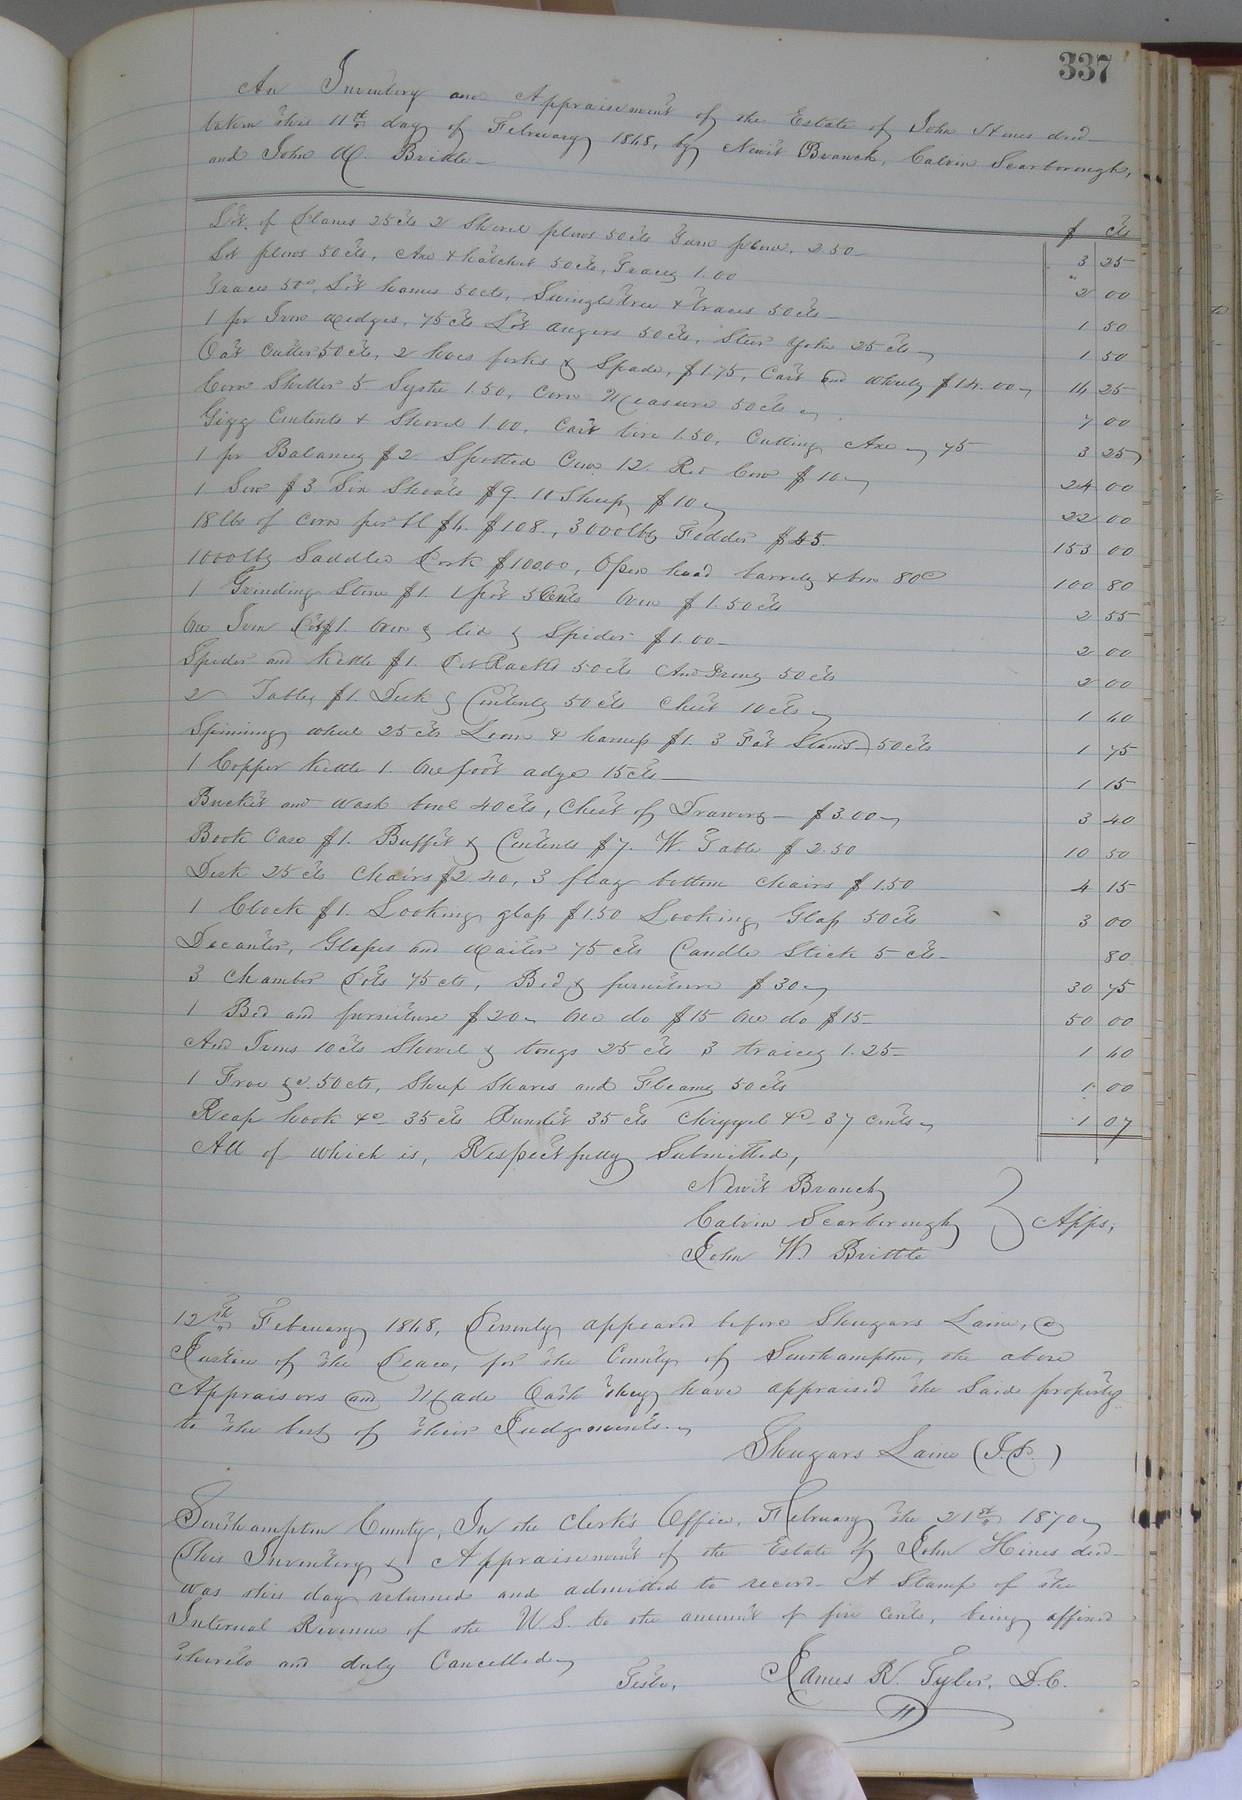 337
An Inventory and Appraisement of the Estate of John Hines decd
taken this 11th day of February 1868, by Newit Branch, Calvin Scarborough,
and John W. Brittle
$ cts
Lot of Planes 25 cts 2 Shovel plows 50 cts Turn plow, 2.50 3 25
Lot plows 50 cts, Axe & hatchet 50 cts, Traces 1.00 2 00
Traces 50c, Lot hames 50 cts, Swingle tree & traces 50 cts 1 50
1 pr Iron Wedges, 75 cts Lot augers 50 cts, Steer Yoke 25 cts 1 50
Oat Cutter 50 cts, 2 hoes forks & Spade, $1.75, Cart and wheels $14.00 14 25
Corn Sheller 5 Syths 1.50, Corn Measure 50 cts 7 00
Gigg Contents & Shovel 1.00, Cart tire 1.50, Cutting Axe 75 3 25
1 pr Balances $2 Spotted Cow 12. Red Cow $10 24 00
1 Sow $3 Six Shoats $9. 11 Sheep $10 22 00
18 lbs of Corn per bl $6. $108., 3000 lbs Fodder $45. 153 00
1000 lbs Saddled Pork $100.00, Open head barrels & box 80c 100 80
1 Grinding Stone $1. 1 pot 5 Cents Oven $1.50 cts 2 55
One Iron Pot $1. Oven & lid & Spider $1.00 2 00
Spider and Kettle $1. Pot Racks 50 cts And Irons 50 cts 2 00
2 Tables $1. Desk & Contents 50 cts Chest 10 cts 1 40
Spinning wheel 25 cts Loom & harness $1. 3 Fat Stands 50 cts 1 75
1 Copper Kettle 1. One foot adze 15 cts 1 15
Bucket and wash bowl 40 cts, Chest of Drawers $3.00 3 40
Book Case $1. Buffet & Contents $7. W. Table $2.50 10 50
Desk 25 cts Chairs $2.40, 3 flag bottom chairs $1.50 4 15
1 Clock $1. Looking glass $1.50 Looking Glass 50 cts 3 00
Decanter, Glasses and Waiter 75 cts Candle Stick 5 cts 80
3 Chamber Pots 75 cts, Bed & furniture $30 30 75
1 Bed and furniture $20 One do $15 One do $15 50 00
And Irons 10 cts Shovel & tongs 25 cts 3 1.25 1 40
1 Froe &c. 50 cts, Sheep Shares and Fleams 50 cts 1 00
Reap hook &c 35 cts 35 cts &c 37 cents 1 07
All of which is, Respectfully Submitted,
Newit Branch
Calvin Scarborough } Apps,
John W. Brittle
12th February 1868, appeared before Shugars Laine, a
Justice of the Peace, for the County of Southampton, the above
Appraisors and Made Oath they have appraised the Said property
to the best of their Judgments.
Shugars Laine (J.P.)
Southampton County, In the Clerk's Office, February the 21st 1870
This Inventory & Appraisement of the Estate of John Hines decd
was this day returned and admitted to record. A Stamp of the
Internal Revenue of the U.S. to the amount of five cents, being affixed
thereto and duly Cancelled
Teste, James R. Tyler, D.C.